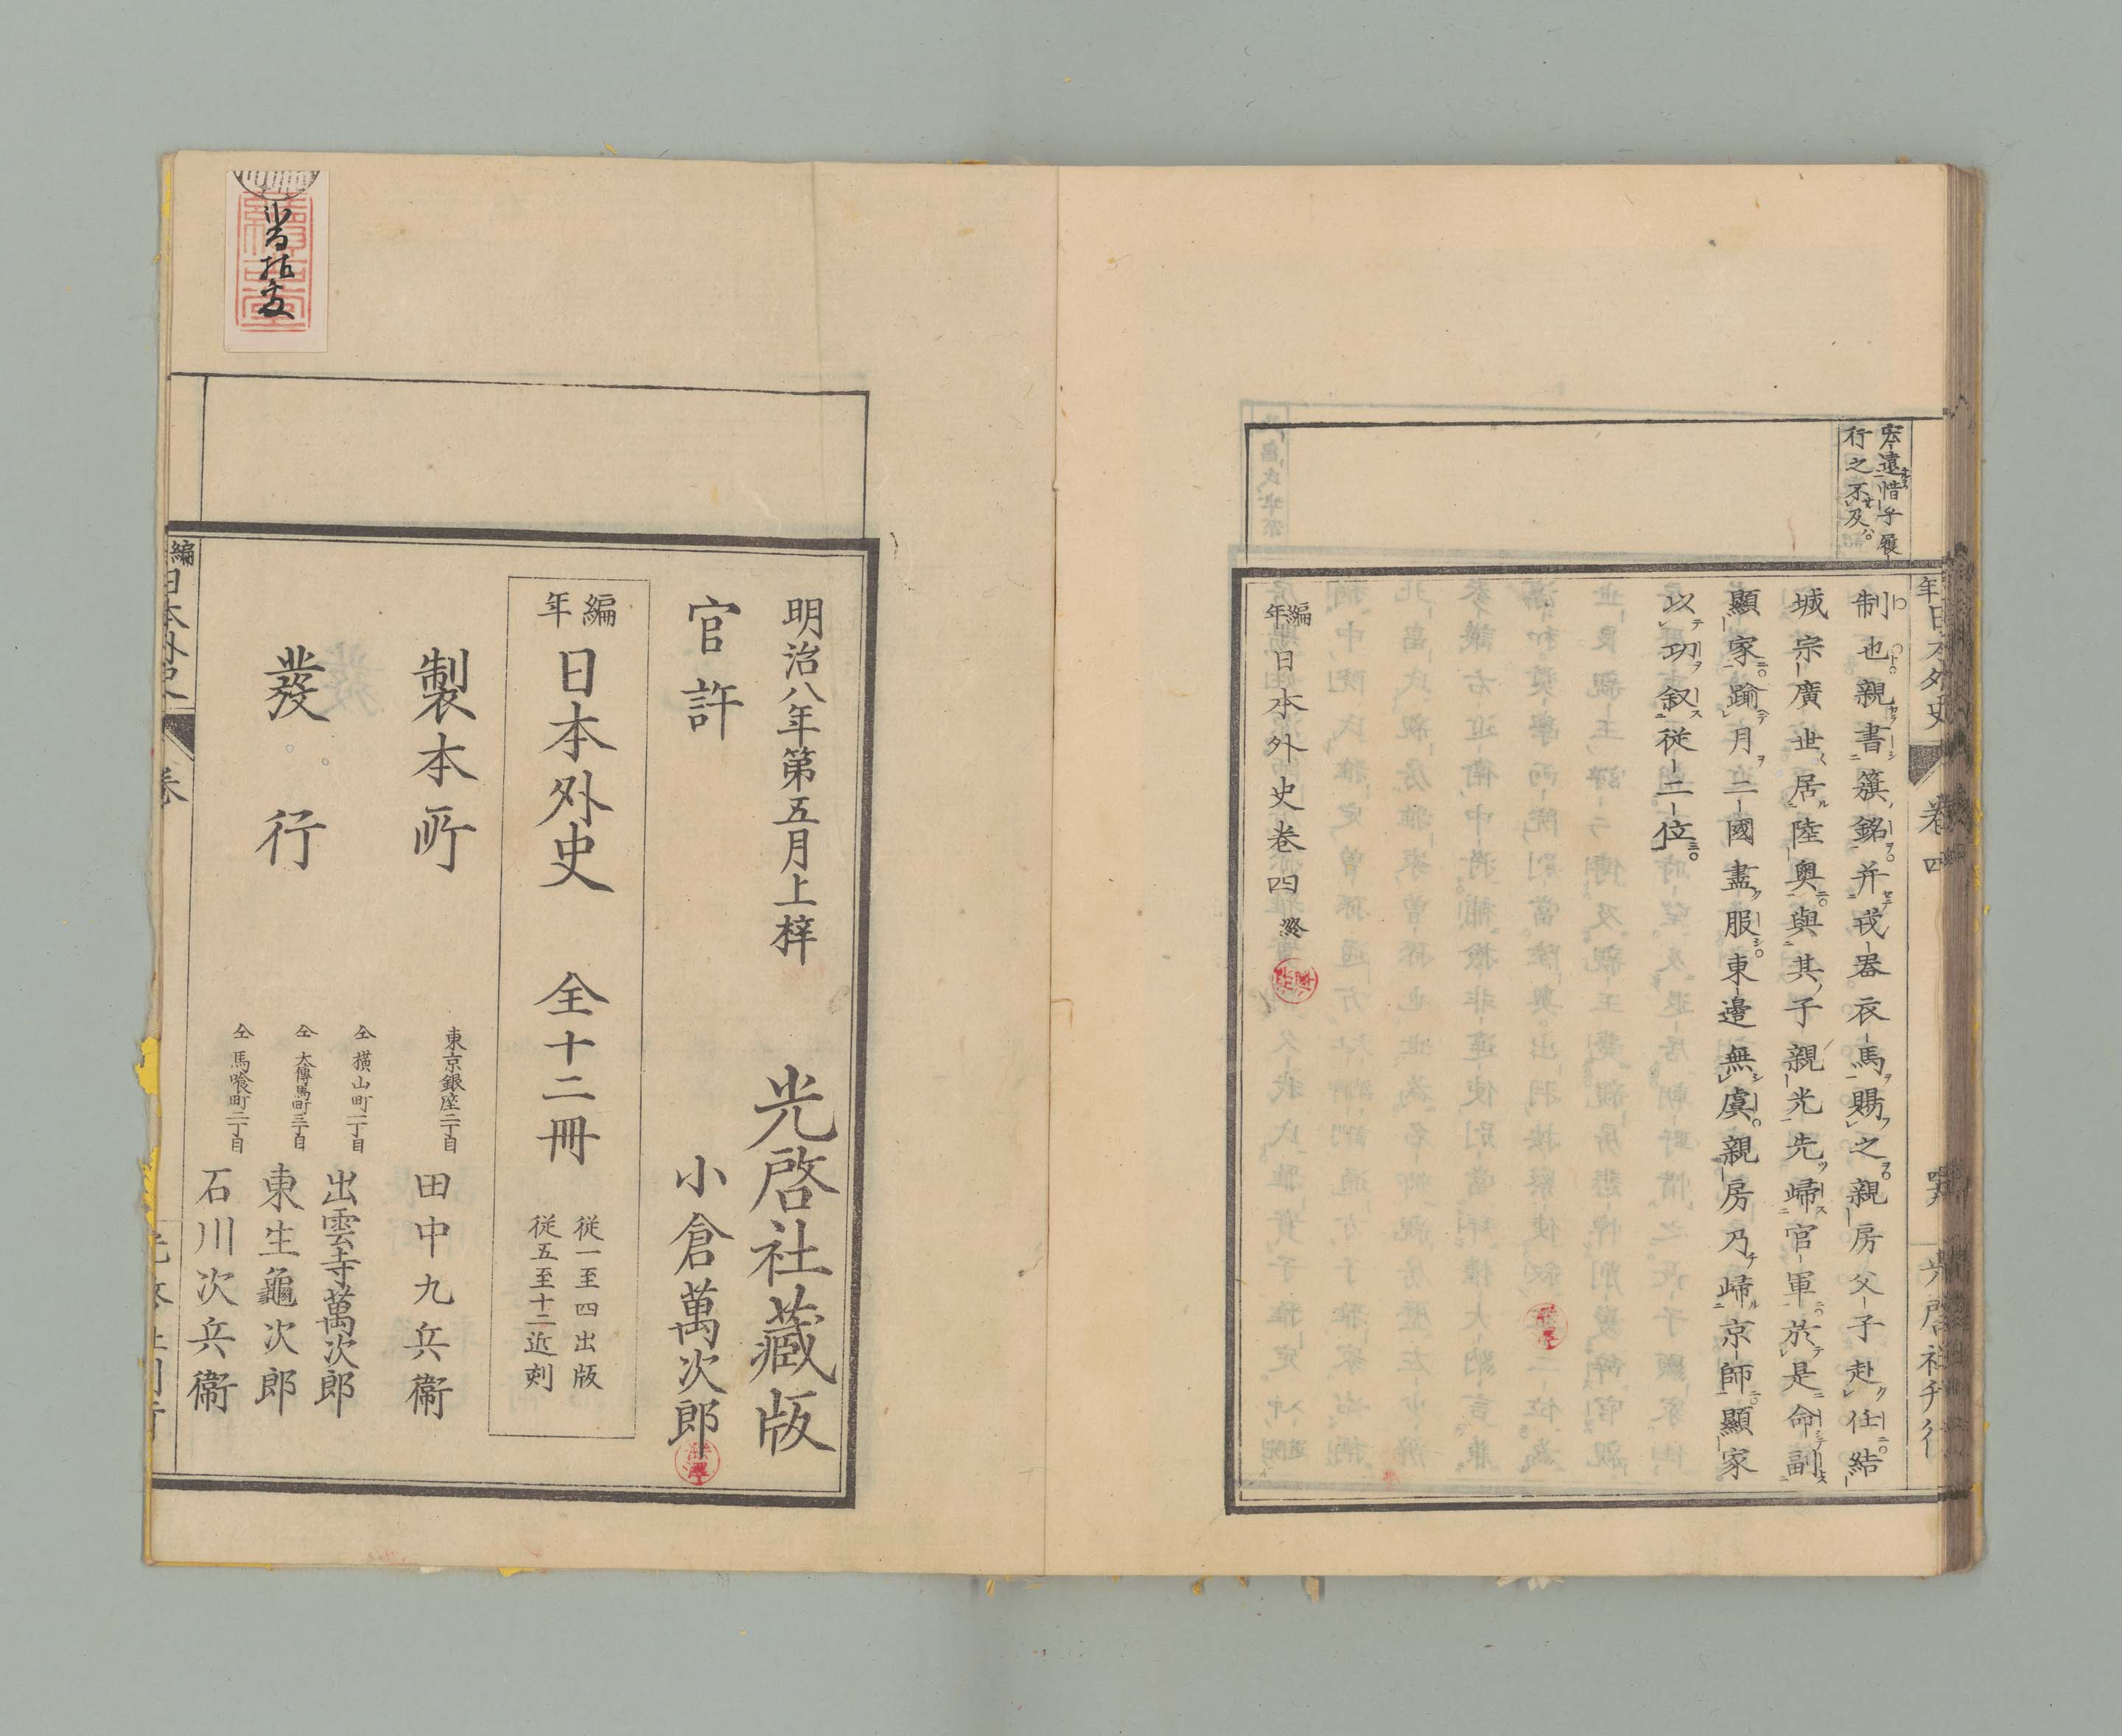 宏遠惜乎履
行之不及
年日本外史
卷四
光啓社刊行
制也親書籏銘并戎器衣馬賜之親房父子赴任結
城宗廣世居陸奧與其子親光先歸官軍於是命副
顯家踰月二國盡服東邊無虞親房乃歸京師顯家
以功叙從二位
編年日本外史卷四 終
明治八年第五月上梓 光啓社藏版
官許 小倉萬次郎
編年日本外史 全十二冊 從一至四出版
從五至十二近刻
製本所 東京銀座二丁目 田中九兵衞
發行 仝 橫山町一丁目 出雲寺萬次郎
仝 大傳馬町三丁目 東生龜次郎
仝 馬喰町二丁目 石川次兵衞
編日本外史 卷